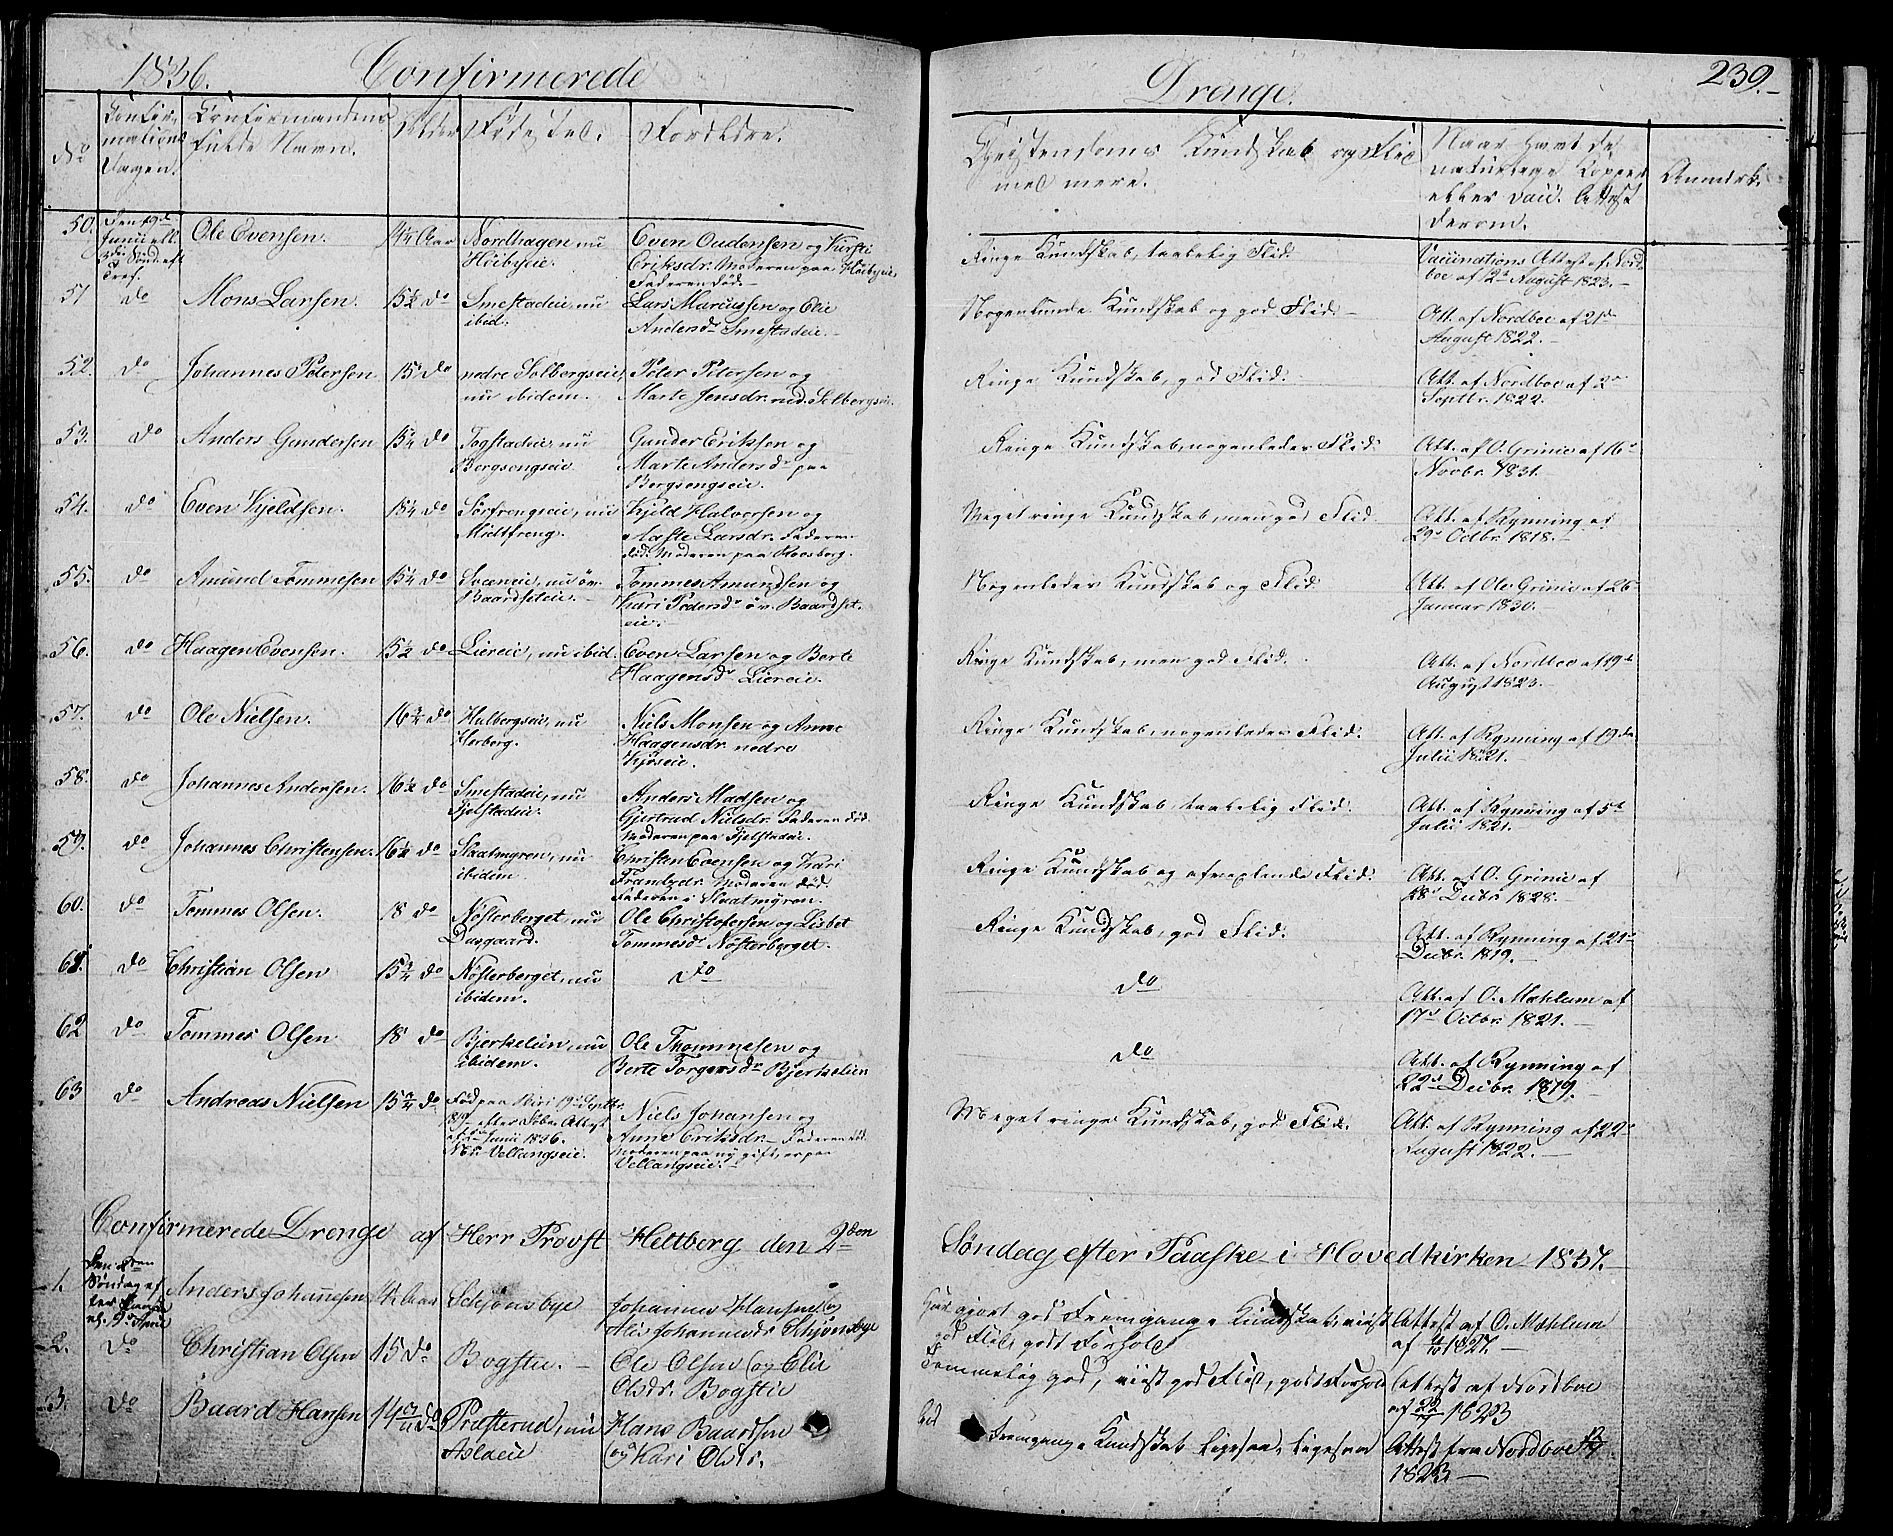 1836. Confirmerede
Drenge.
239.
No
Confir-
mations
Dagen.
Confirmandens
fulde Navn.
Alder
Føde Sted.
Forældre.
Christendoms Kundskab og Flid
med mere.
Naar havt de
naturlige Kopper
eller Vacc. Attest
derom.
Anmærk.
50.
Den 19de
Junii ell.
3die Sønd. eft.
Tref.
Ole Evensen.
14 3/4 Aar
Nordhagen, nu
Höibyeie.
Even Oudensen og Kirsti
Eriksdr. Moderen paa Höibyeie,
Faderen död.
Ringe Kundskab, taalelig Flid.
Vaccinations Attest af Nord-
boe af 12te August 1823.
51
do
Mons Larsen.
15 1/2 do
Smestadeie, nu
ibid.
Lars Marcussen og Elie
Andersdr Smestadeie.
Nogenlunde Kundskab og god Flid.
Att. af Nordboe af 21de
August 1822.
52.
do
Johannes Pedersen
15 do
nedre Solbergseie,
nu ibidem.
Peter Petersen og
Marte Jensdr. ned. Solbergseie.
Ringe Kundskab, god Flid.
Att. af Nordboe af 2den
Septbr. 1822.
53.
do
Anders Gundersen
15 1/4 do
Togstadeie, nu
Bergsengseie
Gunder Eriksen og
Marte Andersdr paa
Bergsengseie.
Ringe Kundskab, nogenledes Flid.
Att. af O. Grinie af 16de
Novbr. 1831.
54.
do
Even Kjeldsen.
18 1/4 do
Sörfrengseie, nu
Midtfreng.
Kjeld Halvorsen og
Larsdr. Faderen
död. Moderen paa
Meget ringe Kundskab, men god Flid.
Att. af Rynning af
29de Octbr. 1818.
55.
do
Amund Tommesen
15 1/4 do
Svæneie, nu öv.
Baardseteie.
Tommes Amundsen og
Kari Pedersdr öv. Baardset-
eie.
Nogenledes Kundskab og Flid.
Att. af Ole Grinie af 26de
Januar 1830.
56.
do
Haagen Evensen.
15 1/2 do
Liereie, nu ibid.
Even Larsen og Berte
Haagensdr Liereie.
Ringe Kundskab, men god Flid.
Att. af Nordboe af 19de
August 1823.
57.
do
Ole Nielsen.
16 3/4 do
Hulbergseie, nu
Horberg.
Niels Monsen og Anne
Haagensdr. nedre
Kjöseie.
Ringe Kundskab, nogenledes Flid.
Att. af Rynning af 19de
Julii 1821.
58.
do
Johannes Andersen.
16 1/2 do
Smestadeie, nu
Fjelstadeie.
Anders Madsen og
Gjertrud Nielsdr. Faderen död.
Moderen paa Fjelstadeie.
Ringe Kundskab taalelig Flid.
Att. af Rynning af 5te
Julii 1821.
59.
do
Johannes Christensen.
16 1/2 do
Slaatmyren, nu
ibidem.
Christen Evensen og Kari
Frandsdr. Moderen död.
Faderen i Slaatmyren.
Ringe Kundskab og afvexlende Flid.
Att. af O. Grinie af
18de Decbr 1828.
60.
do
Tommes Olsen.
18 do
Nösterberget, nu
Dusgaard.
Ole Christophersen og Lisbet
Tommesdr Nösterberget.
Ringe Kundskab, god Flid.
Att. af Rynning af 21de
Decbr. 1819.
61.
do
Christian Olsen
15 3/4 do
Nösterberget, nu
ibidem.
do
do
Att. af O. Mæhlum af
17de Octbr. 1821.
62
do
Tommes Olsen
18 do
Bjerkelien, nu
ibidem.
Ole Thommesen og
Berte Torgersdr Bjerkelien
do
Att. af Rynning af
22de Decbr. 1819.
63
do
Andreas Nielsen
15 3/4 do
Född paa Biri 19de Septbr.
efter Attest
af Junii 1836.
Vellangseie.
Niels Johansen og
Anne Eriksdr. Faderen död.
Moderen paa ny gift, er paa
Vellangseie.
Meget ringe Kundskab, god Flid.
Att. af Rynning af 22de
August 1822.
Confirmerede Drenge af Herr Provst Heltberg den 2den
Søndag efter Paaske i Hovedkirken 1837.
1.
Den 2den
Søndag ef-
ter Paaske
9de April
Anders Johannesen
14 1/2 Aar
Schjønsbye
Johannes Hansen og
Alis Johannesdr. Schjønsbye
Har gjort god Fremgang i Kundskab, viist
god Flid, godt Forhold
Attest af O. Mæhlum
af 4/10 1827.
2.
do
Christian Olsen
15 do
Bogstie.
Ole Olsen og Elie
Olsdr. Bogstie
Temmelig god, viist god Flid, godt Forhold
Attest af Nordboe
af 22/ 1823
3.
do
Baard Hansen
14 do
Præsterud, nu
Aslaeie
Hans Baardsen
og Kari Olsdr.
Fremgang i Kundskab ligesaa, ligesaa
Attest fra Nordboe
1823